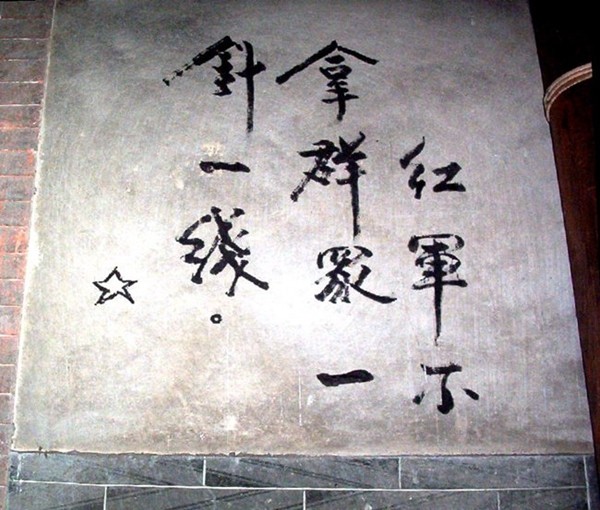 红軍不
拿群眾一
針一綫。